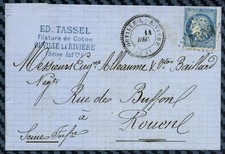 ED. TASSEL
Filature de Coton
DEVILLE LA RIVIÈRE
(Seine Infre)
Messieurs Eug Alleaume & Baillard
Negts
Rue de Buffon
Rouen
Seine Infre